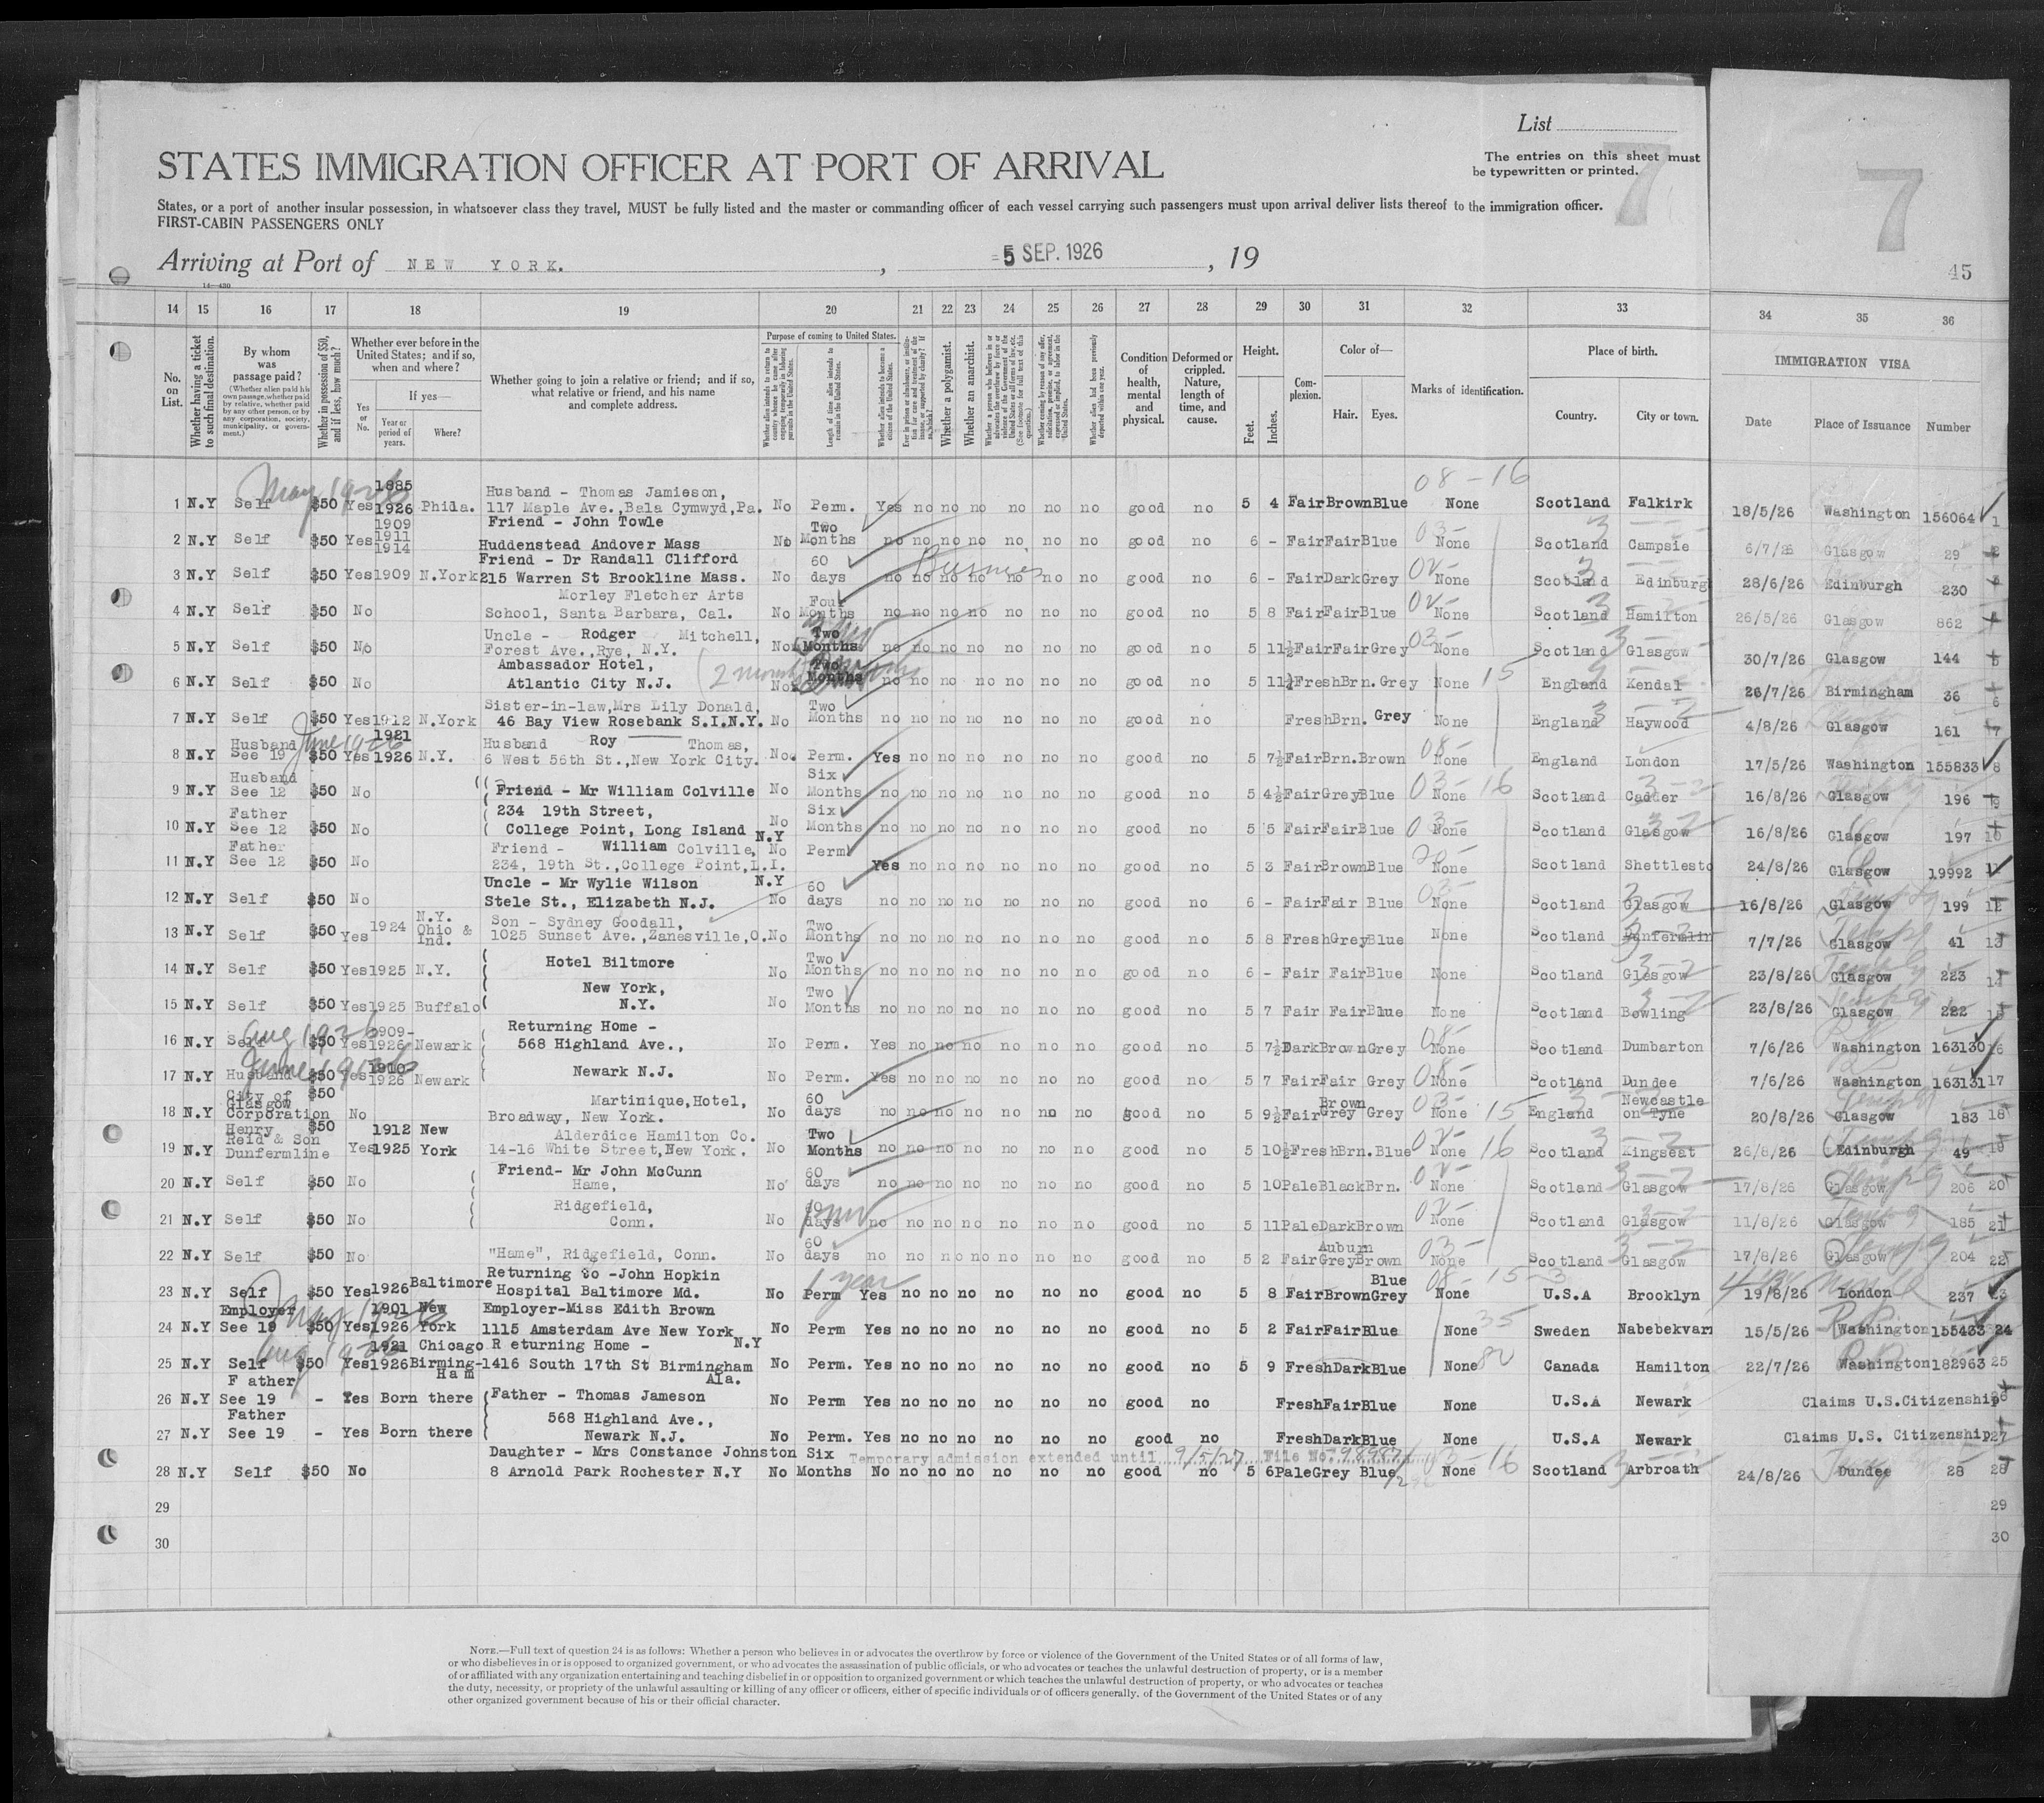 List
The entries on this sheet must
be typewritten or printed.
7
7
45
STATES IMMIGRATION OFFICER AT PORT OF ARRIVAL
States, or a port of another insular possession, in whatsoever class they travel, MUST be fully listed and the master or commanding officer of each vessel carrying such passengers must upon arrival deliver lists thereof to the immigration officer.
FIRST-CABIN PASSENGERS ONLY
Arriving at Port of NEW YORK. , 5 SEP. 1926 , 19
14—430
14 15 16 17 18 19 20 21 22 23 24 25 26 27 28 29 30 31 32 33 34 35 36
No. on List.
Whether having a ticket to such final destination.
By whom was passage paid?
(Whether alien paid his own passage, whether paid by relative, whether paid by any other person, or by any corporation, society, municipality, or government.)
Whether in possession of $50, and if less, how much?
Whether ever before in the United States; and if so, when and where?
Yes or No.
If yes—
Year or period of years.
Where?
Whether going to join a relative or friend; and if so, what relative or friend, and his name and complete address.
Purpose of coming to United States.
Length of time alien intends to remain in the United States.
Whether alien intends to become a citizen of the United States.
Whether a polygamist.
Whether an anarchist.
Condition of health, mental and physical.
Deformed or crippled. Nature, length of time, and cause.
Height.
Feet. Inches.
Complexion.
Color of—
Hair. Eyes.
Marks of identification.
Place of birth.
Country. City or town.
IMMIGRATION VISA
Date Place of Issuance Number
1 N.Y Self May 1926 $50 Yes 1885 1926 Phila. Husband - Thomas Jamieson, 117 Maple Ave.,Bala Cymwyd,Pa. No Perm. Yes no no no no no no good no 5 4 Fair Brown Blue None 08-16 Scotland Falkirk 18/5/26 Washington 156064 1
2 N.Y Self $50 Yes 1909 1911 1914 Friend - John Towle Huddenstead Andover Mass No Two Months no no no no no no no good no 6 - Fair Fair Blue None Scotland Campsie 6/7/26 Glasgow 29 2
3 N.Y Self $50 Yes 1909 N.York Friend - Dr Randall Clifford 215 Warren St Brookline Mass. No 60 days no no no no no no no good no 6 - Fair Dark Grey None Scotland Edinburg 28/6/26 Edinburgh 230
4 N.Y Self $50 No Morley Fletcher Arts School, Santa Barbara, Cal. No Four Months no no no no no no good no 5 8 Fair Fair Blue None Scotland Hamilton 26/5/26 Glasgow 862
5 N.Y Self $50 No Uncle - Rodger Mitchell, Forest Ave.,Rye, N.Y. No Two Months no no no no no no good no 5 11½ Fair Fair Grey None Scotland Glasgow 30/7/26 Glasgow 144 5
6 N.Y Self $50 No Ambassador Hotel, Atlantic City N.J. No Two Months no no no no no no good no 5 11½ Fresh Brn. Grey None 15 England Kendal 26/7/26 Birmingham 36 6
7 N.Y Self $50 Yes 1912 N.York Sister-in-law,Mrs Lily Donald, 46 Bay View Rosebank S.I.N.Y. No Two Months no no no no no no good no Fresh Brn. Grey None England Haywood 4/8/26 Glasgow 161 7
8 N.Y Husband See 19 June 1926 $50 Yes 1921 1926 N.Y. Husband Roy Thomas, 6 West 56th St.,New York City. No. Perm. Yes no no no no no no good no 5 7½ Fair Brn. Brown None England London 17/5/26 Washington 155833 8
9 N.Y Husband See 12 $50 No Friend - Mr William Colville No Six Months no no no no no no good no 5 4½ Fair Grey Blue None 16 Scotland Cadder 16/8/26 Glasgow 196 9
10 N.Y Father See 12 $50 No 234 19th Street, College Point, Long Island N.Y No Six Months no no no no no no good no 5 5 Fair Fair Blue None Scotland Glasgow 16/8/26 Glasgow 197 10
11 N.Y Father See 12 $50 No Friend - William Colville, 234, 19th St.,College Point,L.I. N.Y No Perm Yes no no no no no no good no 5 3 Fair Brown Blue None Scotland Shettlesto 24/8/26 Glasgow 19992 11
12 N.Y Self $50 No Uncle - Mr Wylie Wilson Stele St., Elizabeth N.J. No 60 days no no no no no no good no 6 - Fair Fair Blue None Scotland Glasgow 16/8/26 Glasgow 199 12
13 N.Y Self $50 Yes 1924 N.Y. Ohio & Ind. Son - Sydney Goodall, 1025 Sunset Ave.,Zanesville,O. No Two Months no no no no no no good no 5 8 Fresh Grey Blue None Scotland Dunfermlin 7/7/26 Glasgow 41 13
14 N.Y Self $50 Yes 1925 N.Y. Hotel Biltmore No Two Months no no no no no no good no 6 - Fair Fair Blue None Scotland Glasgow 23/8/26 Glasgow 223 14
15 N.Y Self $50 Yes 1925 Buffalo New York, N.Y. No Two Months no no no no no no good no 5 7 Fair Fair Blue None Scotland Bowling 23/8/26 Glasgow 222 15
16 N.Y Self Aug 1926 $50 Yes 1909- 1926 Newark Returning Home - 568 Highland Ave., No Perm. Yes no no no no no no good no 5 7½ Dark Brown Grey None Scotland Dumbarton 7/6/26 Washington 163130 16
17 N.Y Husband June 1926 $50 Yes 1910- 1926 Newark Newark N.J. No Perm. Yes no no no no no no good no 5 7 Fair Fair Grey None Scotland Dundee 7/6/26 Washington 163131 17
18 N.Y City of Glasgow Corporation $50 No Martinique,Hotel, Broadway, New York. No 60 days no no no no no no good no 5 9½ Fair Brown Grey Grey None 15 England Newcastle on Tyne 20/8/26 Glasgow 183 18
19 N.Y Henry Reid & Son Dunfermline $50 Yes 1912 1925 New York Alderdice Hamilton Co. 14-16 White Street,New York. No Two Months no no no no no no good no 5 10½ Fresh Brn. Blue None 16 Scotland Kingseat 26/8/26 Edinburgh 49 19
20 N.Y Self $50 No Friend- Mr John McCunn Hame, No 60 days no no no no no no good no 5 10 Pale Black Brn. None Scotland Glasgow 17/8/26 Glasgow 206 20
21 N.Y Self $50 No Ridgefield, Conn. No 60 days no no no no no no good no 5 11 Pale Dark Brown None Scotland Glasgow 11/8/26 Glasgow 185 21
22 N.Y Self $50 No "Hame", Ridgefield, Conn. No 60 days no no no no no no no good no 5 2 Fair Auburn Grey Brown None Scotland Glasgow 17/8/26 Glasgow 204 22
23 N.Y Self $50 Yes 1926 Baltimore Returning to -John Hopkin Hospital Baltimore Md. No Perm 1 year Yes no no no no no no good no 5 8 Fair Brown Blue Grey None U.S.A Brooklyn 19/8/26 London 237 23
24 N.Y Employer See 19 May 1926 $50 Yes 1901 1926 New York Employer-Miss Edith Brown 1115 Amsterdam Ave New York N.Y No Perm Yes no no no no no no good no 5 2 Fair Fair Blue None 35 Sweden Nabebekvarn 15/5/26 Washington 155433 24
25 N.Y Self Aug 1926 $50 Yes 1921 1926 Chicago Birming-Ham Returning Home - 1416 South 17th St Birmingham Ala. No Perm. Yes no no no no no no good no 5 9 Fresh Dark Blue None Canada Hamilton 22/7/26 Washington 182963 25
26 N.Y Father See 19 - Yes Born there Father - Thomas Jameson No Perm Yes no no no no no no good no Fresh Fair Blue None U.S.A Newark Claims U.S.Citizenship 26
27 N.Y Father See 19 - Yes Born there 568 Highland Ave., Newark N.J. No Perm. Yes no no no no no no good no Fresh Dark Blue None U.S.A Newark Claims U.S. Citizenship 27
Temporary admission extended until 9/5/27 File No. 98987/
28 N.Y Self $50 No Daughter - Mrs Constance Johnston 8 Arnold Park Rochester N.Y No Six Months No no no no no no no good no 5 6 Pale Grey Blue None 16 Scotland Arbroath 24/8/26 Dundee 28 28
29 29
30 30
NOTE.—Full text of question 24 is as follows: Whether a person who believes in or advocates the overthrow by force or violence of the Government of the United States or of all forms of law,
or who disbelieves in or is opposed to organized government, or who advocates the assassination of public officials, or who advocates or teaches the unlawful destruction of property, or is a member
of or affiliated with any organization entertaining and teaching disbelief in or opposition to organized government or which teaches the unlawful destruction of property, or who advocates or teaches
the duty, necessity, or propriety of the unlawful assaulting or killing of any officer or officers, either of specific individuals or of officers generally, of the Government of the United States or of any
other organized government because of his or their official character.